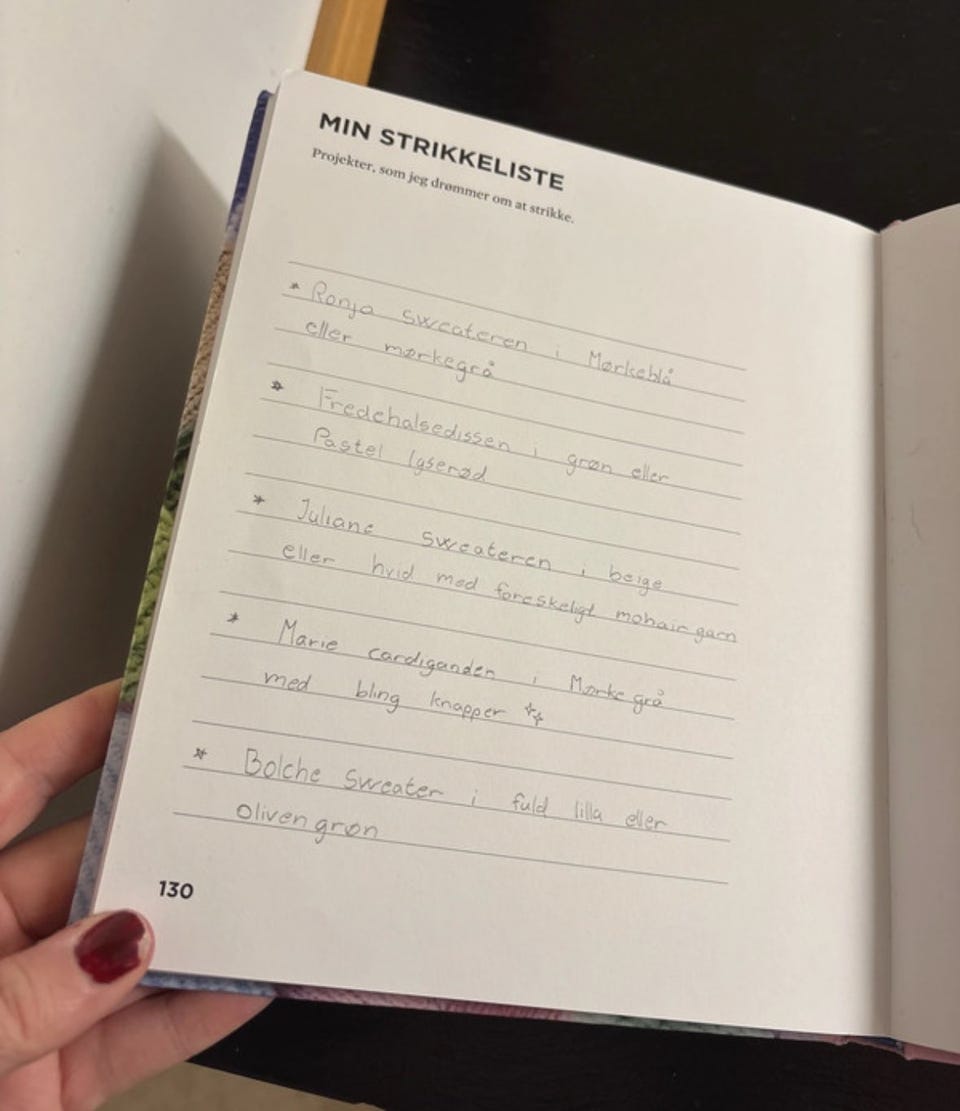 MIN STRIKKELISTE
Projekter, som jeg drømmer om at strikke.
* Ronja sweateren i Mørkeblå
eller mørkegrå
* Fredehalsedissen i grøn eller
Pastel lyserød
* Juliane sweateren i beige
eller hvid med foreskeligt mohair garn
* Marie cardiganden i Mørke grå
med bling knapper
* Bolche sweater i fuld lilla eller
Oliven grøn
130